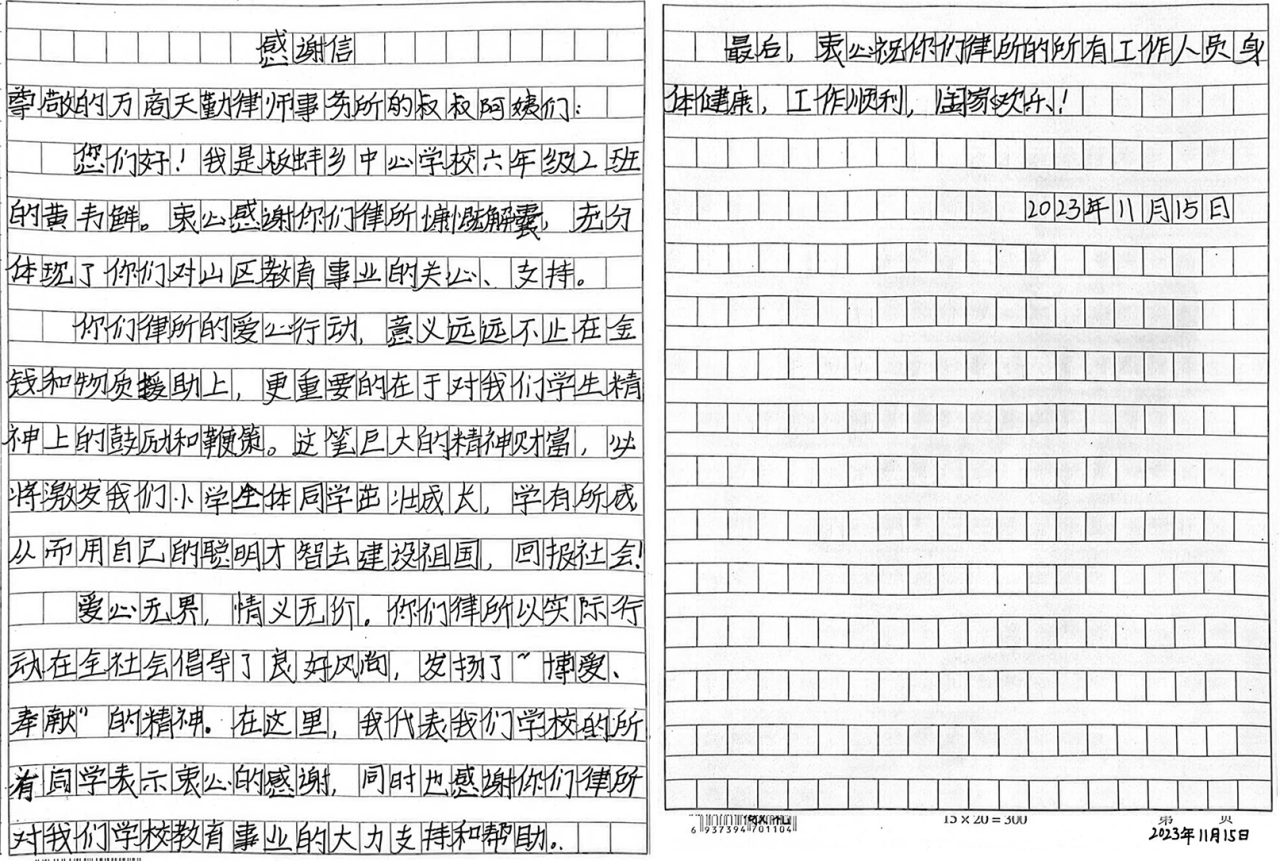 感谢信
尊敬的万商天勤律师事务所的叔叔阿姨们:
您们好！我是板蚌乡中心学校六年级2班
的黄韦鲜。衷心感谢你们律所慷慨解囊，充分
体现了你们对山区教育事业的关心、支持。
你们律所的爱心行动，意义远远不止在金
钱和物质援助上，更重要的在于对我们学生精
神上的鼓励和鞭策。这笔巨大的精神财富，必
将激发我们小学全体同学茁壮成长，学有所成
从而用自己的聪明才智去建设祖国，回报社会！
爱心无界，情义无价。你们律所以实际行
动在全社会倡导了良好风尚，发扬了“博爱、
奉献”的精神．在这里，我代表我们学校的所
有同学表示衷心的感谢，同时也感谢你们律所
对我们学校教育事业的大力支持和帮助。
最后，衷心祝你们律所的所有工作人员身
体健康，工作顺利，阖家欢乐！
2023年11月15日
6 937394 701104
15×20=300
第 页
2023年11月15日